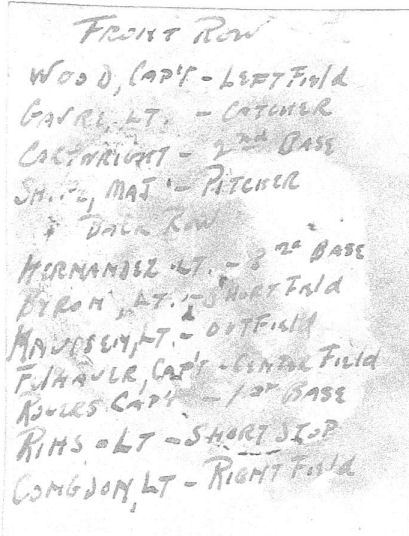 FRONT ROW
WOOD, CAP'T - LEFT FIELD
LT. - CATCHER
CARTWRIGHT - 2nd BASE
MAJ - PITCHER
BACK ROW
HERNANDEZ LT. - 3rd BASE
BYROM, LT. - SHORT FIELD
LT. - OUTFIELD
CAP'T - CENTER FIELD
ROGERS CAP'T - 1st BASE
RIHS - LT - SHORT STOP
CONGDON, LT - RIGHT FIELD